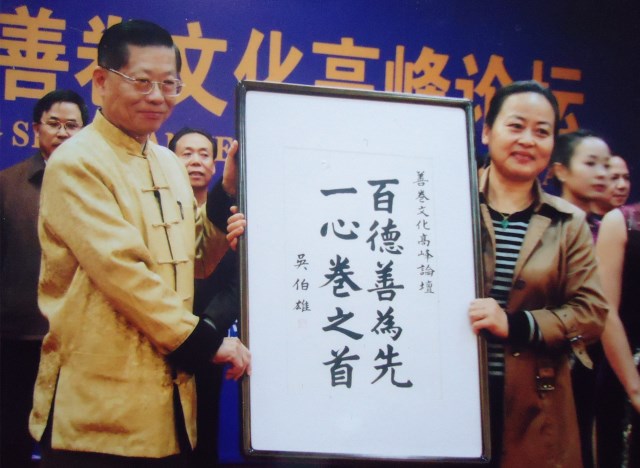 善卷文化高峰论坛
善卷文化高峰論壇
百德善為先
一心卷之首
吳伯雄